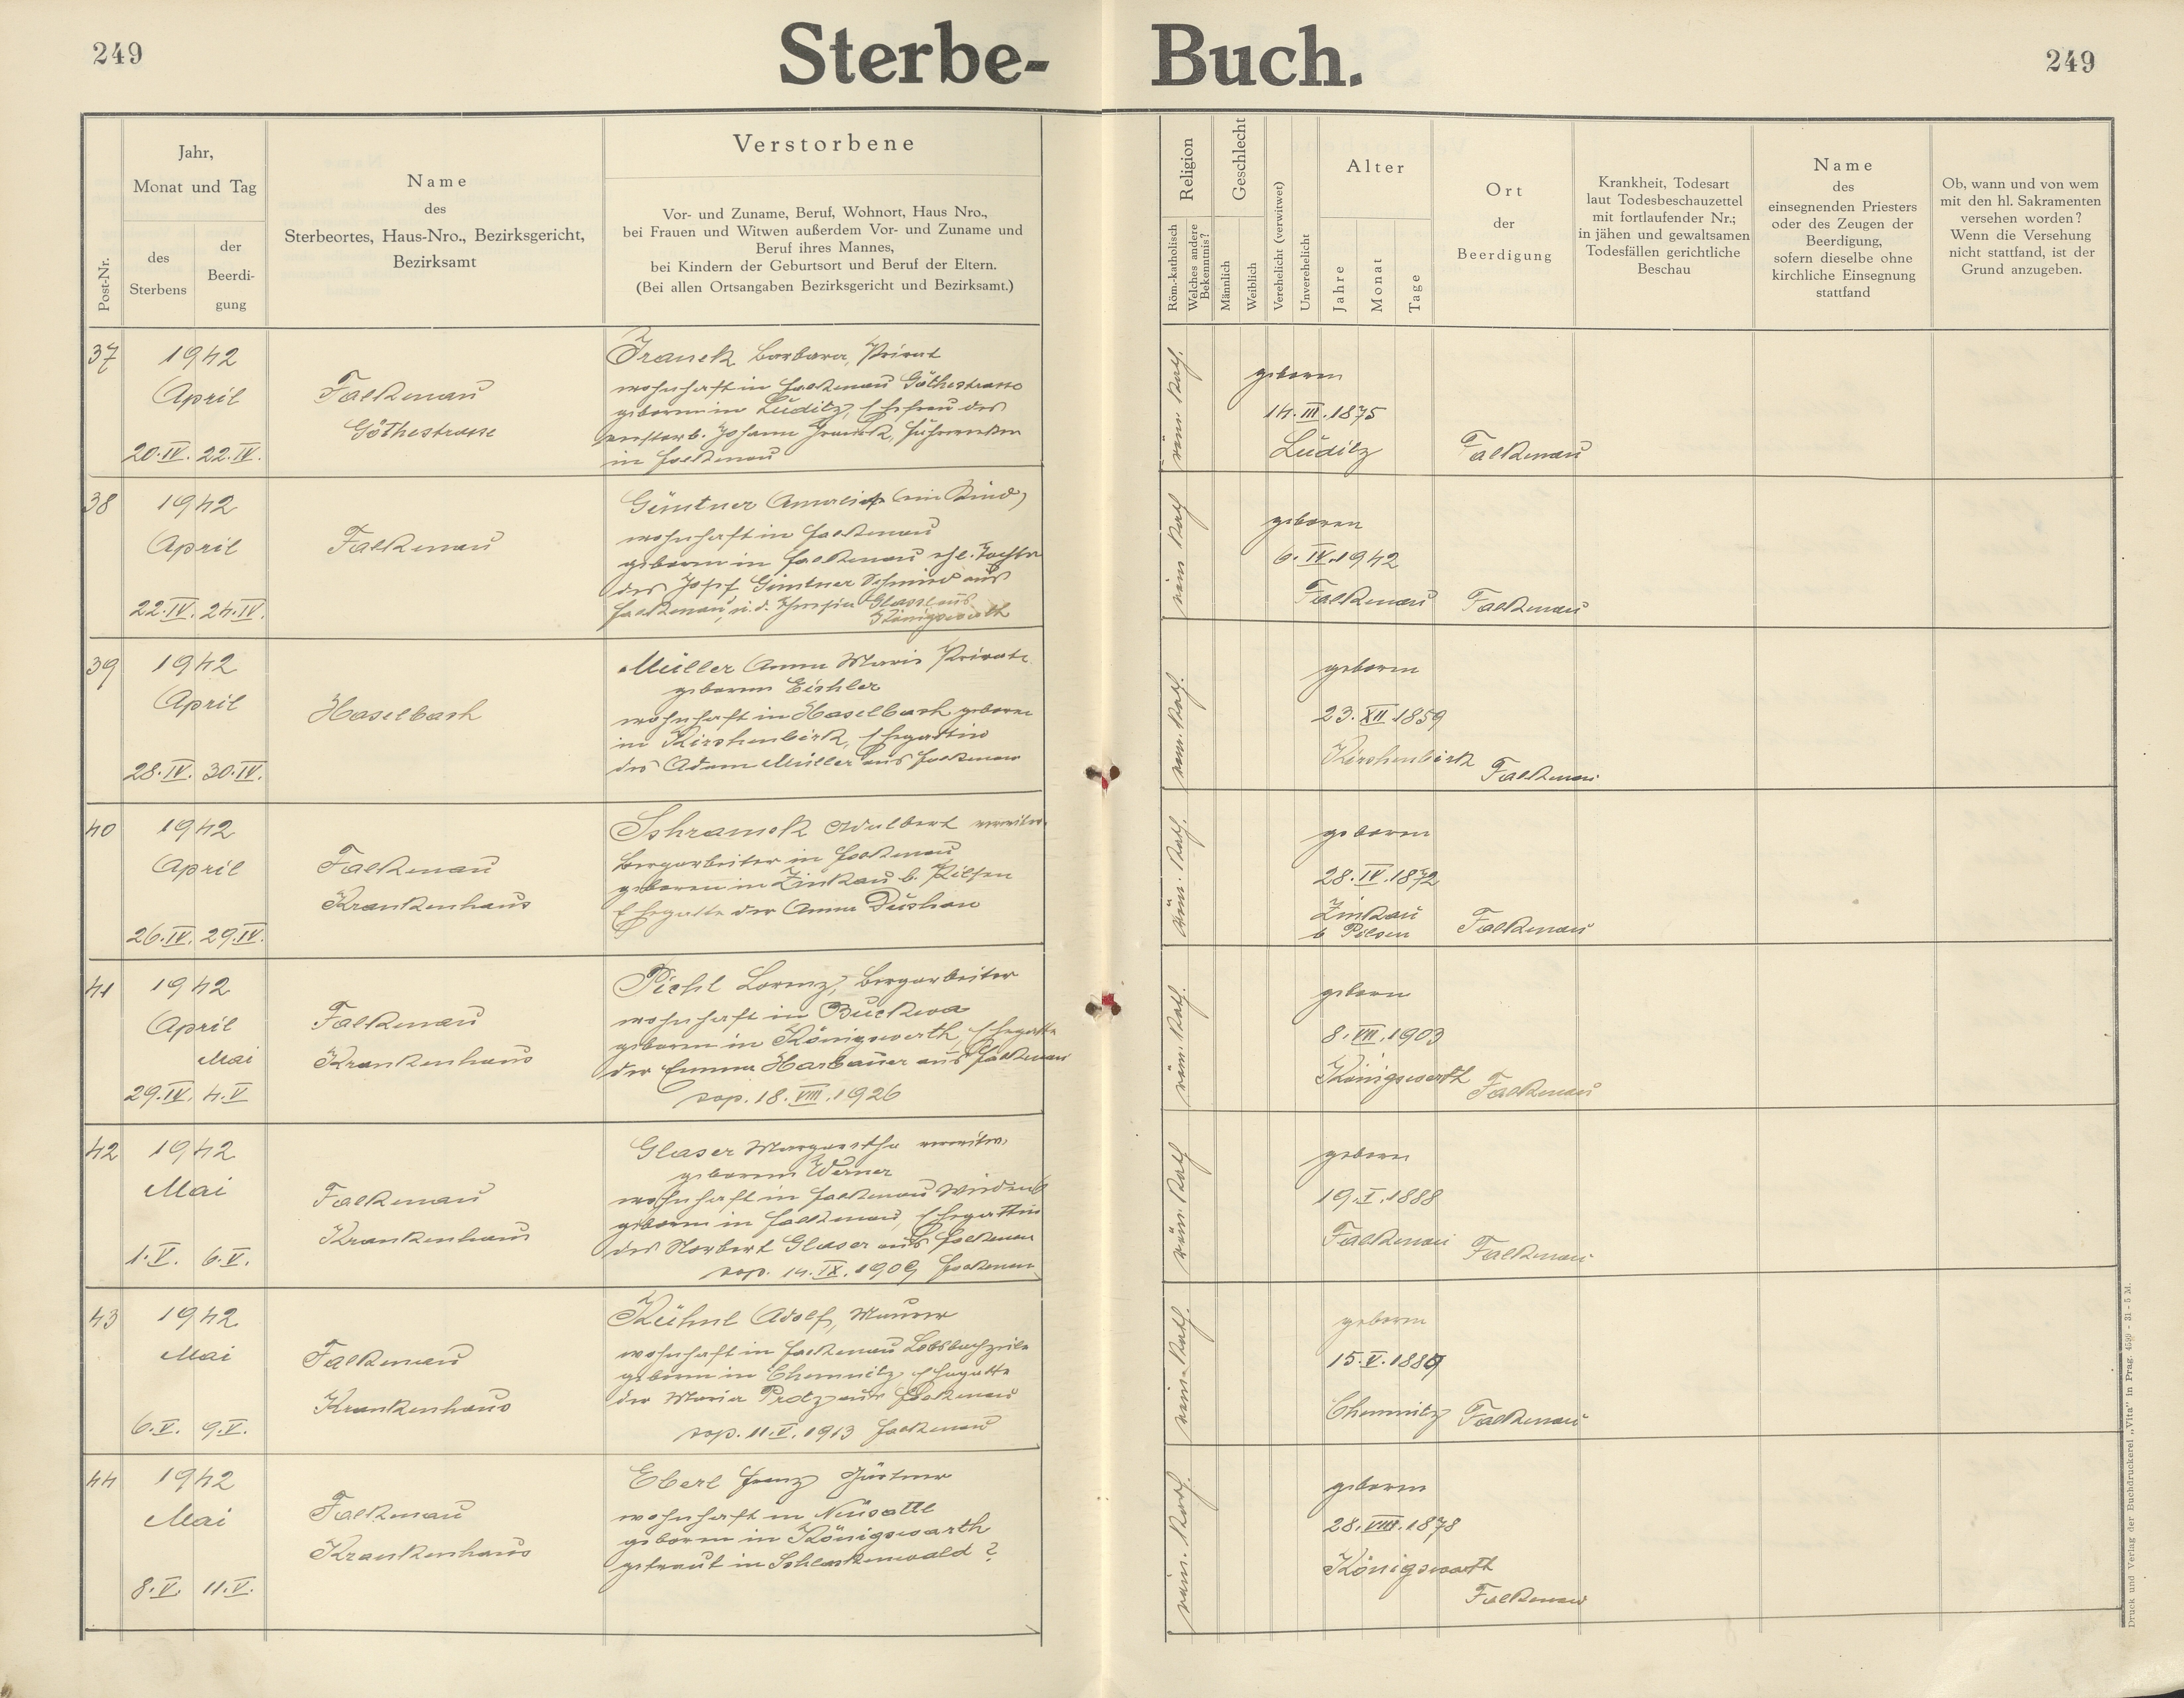 249
Sterbe- Buch.
249
Post-Nr.
Jahr,
Monat und Tag
des
Sterbens
der
Beerdi-
gung
Name
des
Sterbeortes, Haus-Nro., Bezirksgericht,
Bezirksamt
Verstorbene
Vor- und Zuname, Beruf, Wohnort, Haus Nro.,
bei Frauen und Witwen außerdem Vor- und Zuname und
Beruf ihres Mannes,
bei Kindern der Geburtsort und Beruf der Eltern.
(Bei allen Ortsangaben Bezirksgericht und Bezirksamt.)
Religion
Röm.-katholisch
Welches andere
Bekenntnis?
Geschlecht
Männlich
Weiblich
Verehelicht (verwitwet)
Unverehelicht
Alter
Jahre
Monat
Tage
Ort
der
Beerdigung
Krankheit, Todesart
laut Todesbeschauzettel
mit fortlaufender Nr.;
in jähen und gewaltsamen
Todesfällen gerichtliche
Beschau
Name
des
einsegnenden Priesters
oder des Zeugen der
Beerdigung,
sofern dieselbe ohne
kirchliche Einsegnung
stattfand
Ob, wann und von wem
mit den hl. Sakramenten
versehen worden?
Wenn die Versehung
nicht stattfand, ist der
Grund anzugeben.
37
1942
April
20.IV. 22.IV.
Falkenau
Göthestrasse
Franek Barbara, Privat
wohnhaft in Falkenau Göthestrasse
geboren in Luditz, Ehefrau des
verstorb. Johann Franek,
in Falkenau
röm. kath.
geboren
14.III.1875
Luditz
Falkenau
38
1942
April
22.IV. 24.IV.
Falkenau
Güntner Amalia (ein Kind)
wohnhaft in Falkenau
geboren in Falkenau ehl. Tochter
des Josef Güntner Schmied aus
Falkenau, u. d. Theresia Glassl aus
Königswerth
röm. kath
geboren
6.IV.1942
Falkenau
Falkenau
39
1942
April
28.IV. 30.IV.
Haselbach
Müller Anna Maria Private
geborene Eichler
wohnhaft in Haselbach geboren
in Kirchenbirk, Ehegattin
des Adam Müller aus Falkenau
röm. kath.
geboren
23.XII.1859
Kirchenbirk
Falkenau
40
1942
April
26.IV. 29.IV.
Falkenau
Krankenhaus
Schramek Adalbert verwitw.
Bergarbeiter in Falkenau
geboren in Zinkau b. Pilsen
Ehegatte der Anna Duschan
röm. kath.
geboren
28.IV.1872
Zinkau
b Pilsen
Falkenau
41
1942
April
Mai
29.IV. 4.V
Falkenau
Krankenhaus
Piehl Lorenz, Bergarbeiter
wohnhaft in Buckwa
geboren in Königswerth, Ehegatte
der Emma Harbauer aus Falkenau
cop. 18.VIII.1926
röm. kath.
geboren
8.VII.1903
Königswerth
Falkenau
42
1942
Mai
1.V. 6.V.
Falkenau
Krankenhaus
Glaser Margaretha verwitw.
geborene Werner
wohnhaft in Falkenau
geboren in Falkenau, Ehegattin
des Norbert Glaser aus Falkenau
cop. 14.IX.1909 Falkenau
röm. kath
geboren
19.I.1888
Falkenau
Falkenau
43
1942
Mai
6.V. 9.V.
Falkenau
Krankenhaus
Kühnl Adolf, Maurer
wohnhaft in Falkenau Lobsbachzeile
geboren in Chemnitz, Ehegatte
der Maria Protz aus Falkenau
cop. 11.V.1913 Falkenau
röm. kath.
geboren
15.V.1889
Chemnitz
Falkenau
44
1942
Mai
8.V. 11.V.
Falkenau
Krankenhaus
Eberl Franz Gärtner
wohnhaft in Neusattl
geboren in Königswarth
getraut in Schlackenwald ?
röm. kath.
geboren
28.VIII.1878
Königswarth
Falkenau
Druck und Verlag der Buchdruckerei „Vita" in Prag.